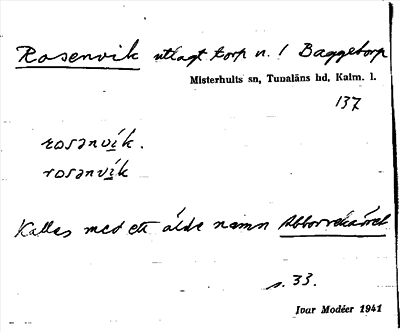 Rosenvik utlagt torp u. / Baggetorp
Misterhults sn, Tunaläns hd, Kalm. l.
137
rosənvík.
rosənvík
Kallas med ett älde namn
s. 33.
Ivar Modéer 1941